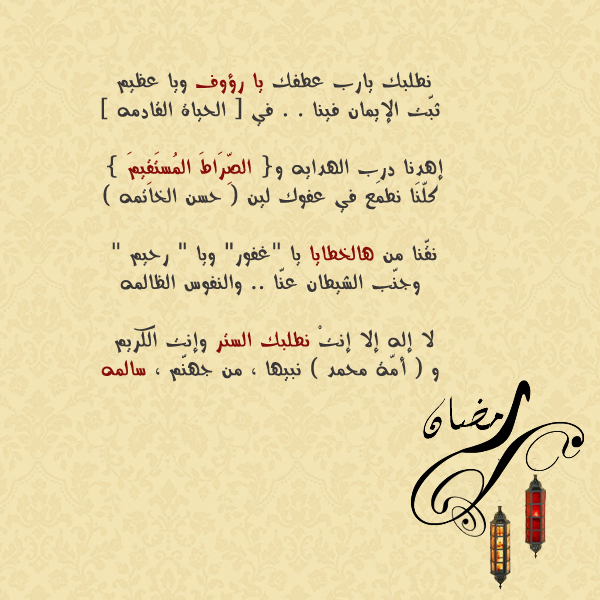 نطلبك يارب عطفك يا رؤوف ويا عظيم
ثبّت الإيمان فينا . . في [ الحياة القادمه ]
إهدنا درب الهدايه و{ الصِّرَاطَ المُستَقيمَ }
كلّنَا نطمَع في عفوك لين ( حسن الخاتمه )
نقّنا من هالخطايا يا "غفور" ويا " رحيم "
وجنّب الشيطان عنّا .. والنفوس الظالمه
لا إله إلا إنتْ نطلبك الستر وإنت الكريم
و ( أمّة محمد ) نبيها ، من جهنّم ، سالمه
رمضان